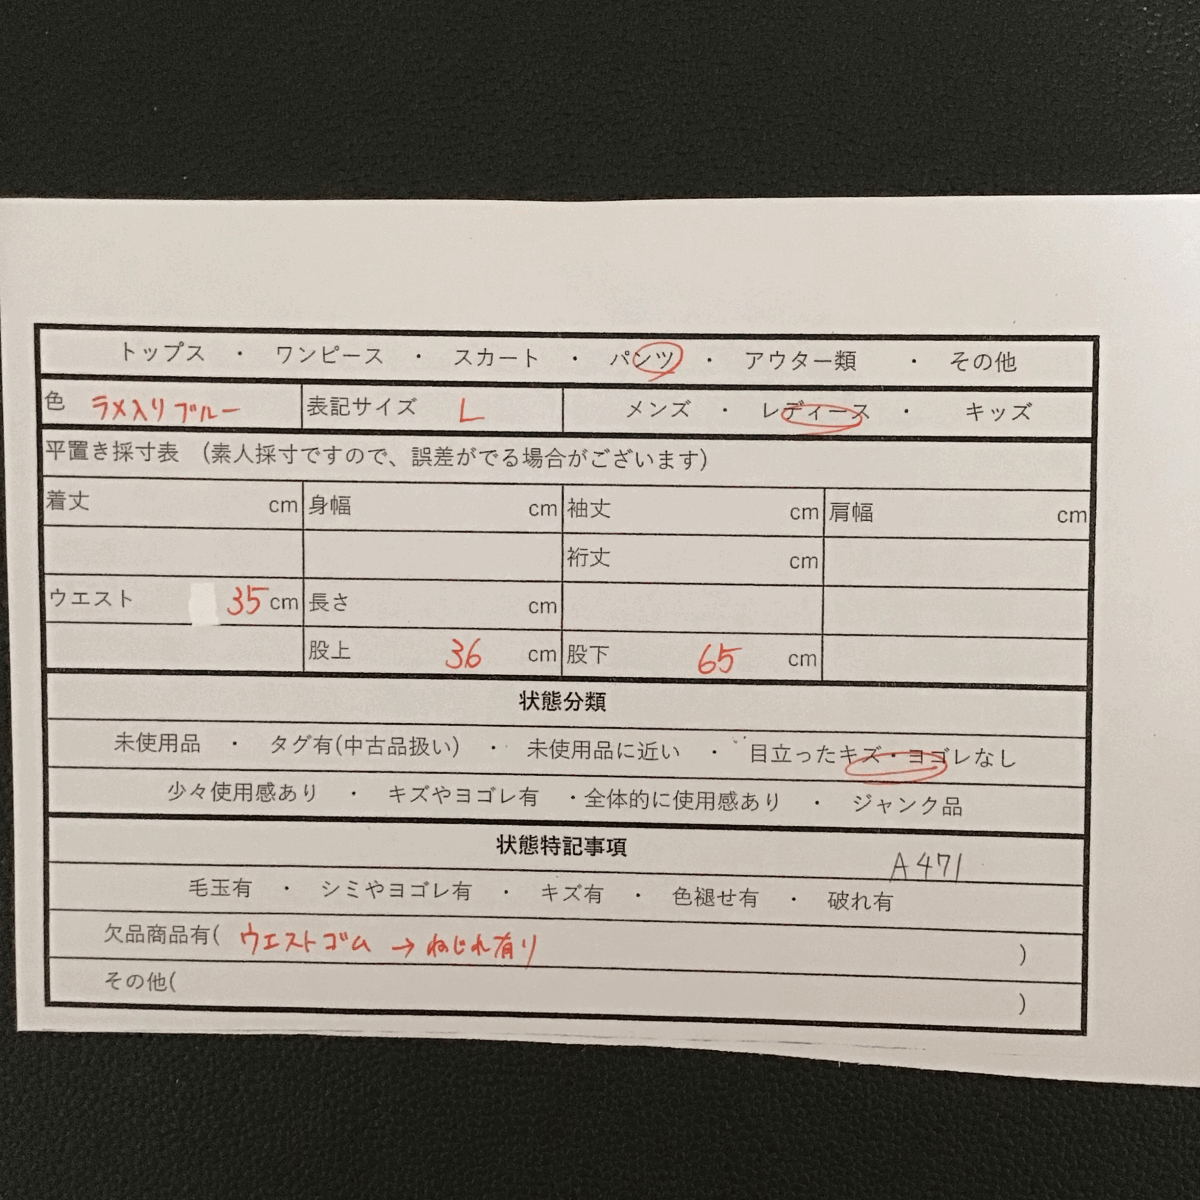 トップス ・ ワンピース ・ スカート ・ パンツ ・ アウター類 ・ その他
色 ラメ入りブルー 表記サイズ L メンズ ・ レディース ・ キッズ
平置き採寸表 (素人採寸ですので、誤差がでる場合がございます)
着丈 cm 身幅 cm 袖丈 cm 肩幅 cm
裄丈 cm
ウエスト 35cm 長さ cm
股上 36 cm 股下 65 cm
状態分類
未使用品 ・ タグ有(中古品扱い) ・ 未使用品に近い ・ 目立ったキズ・ヨゴレなし
少々使用感あり ・ キズやヨゴレ有 ・全体的に使用感あり ・ ジャンク品
状態特記事項 A471
毛玉有 ・ シミやヨゴレ有 ・ キズ有 ・ 色褪せ有 ・ 破れ有
欠品商品有( ウエストゴム → ねじれ有り )
その他( )